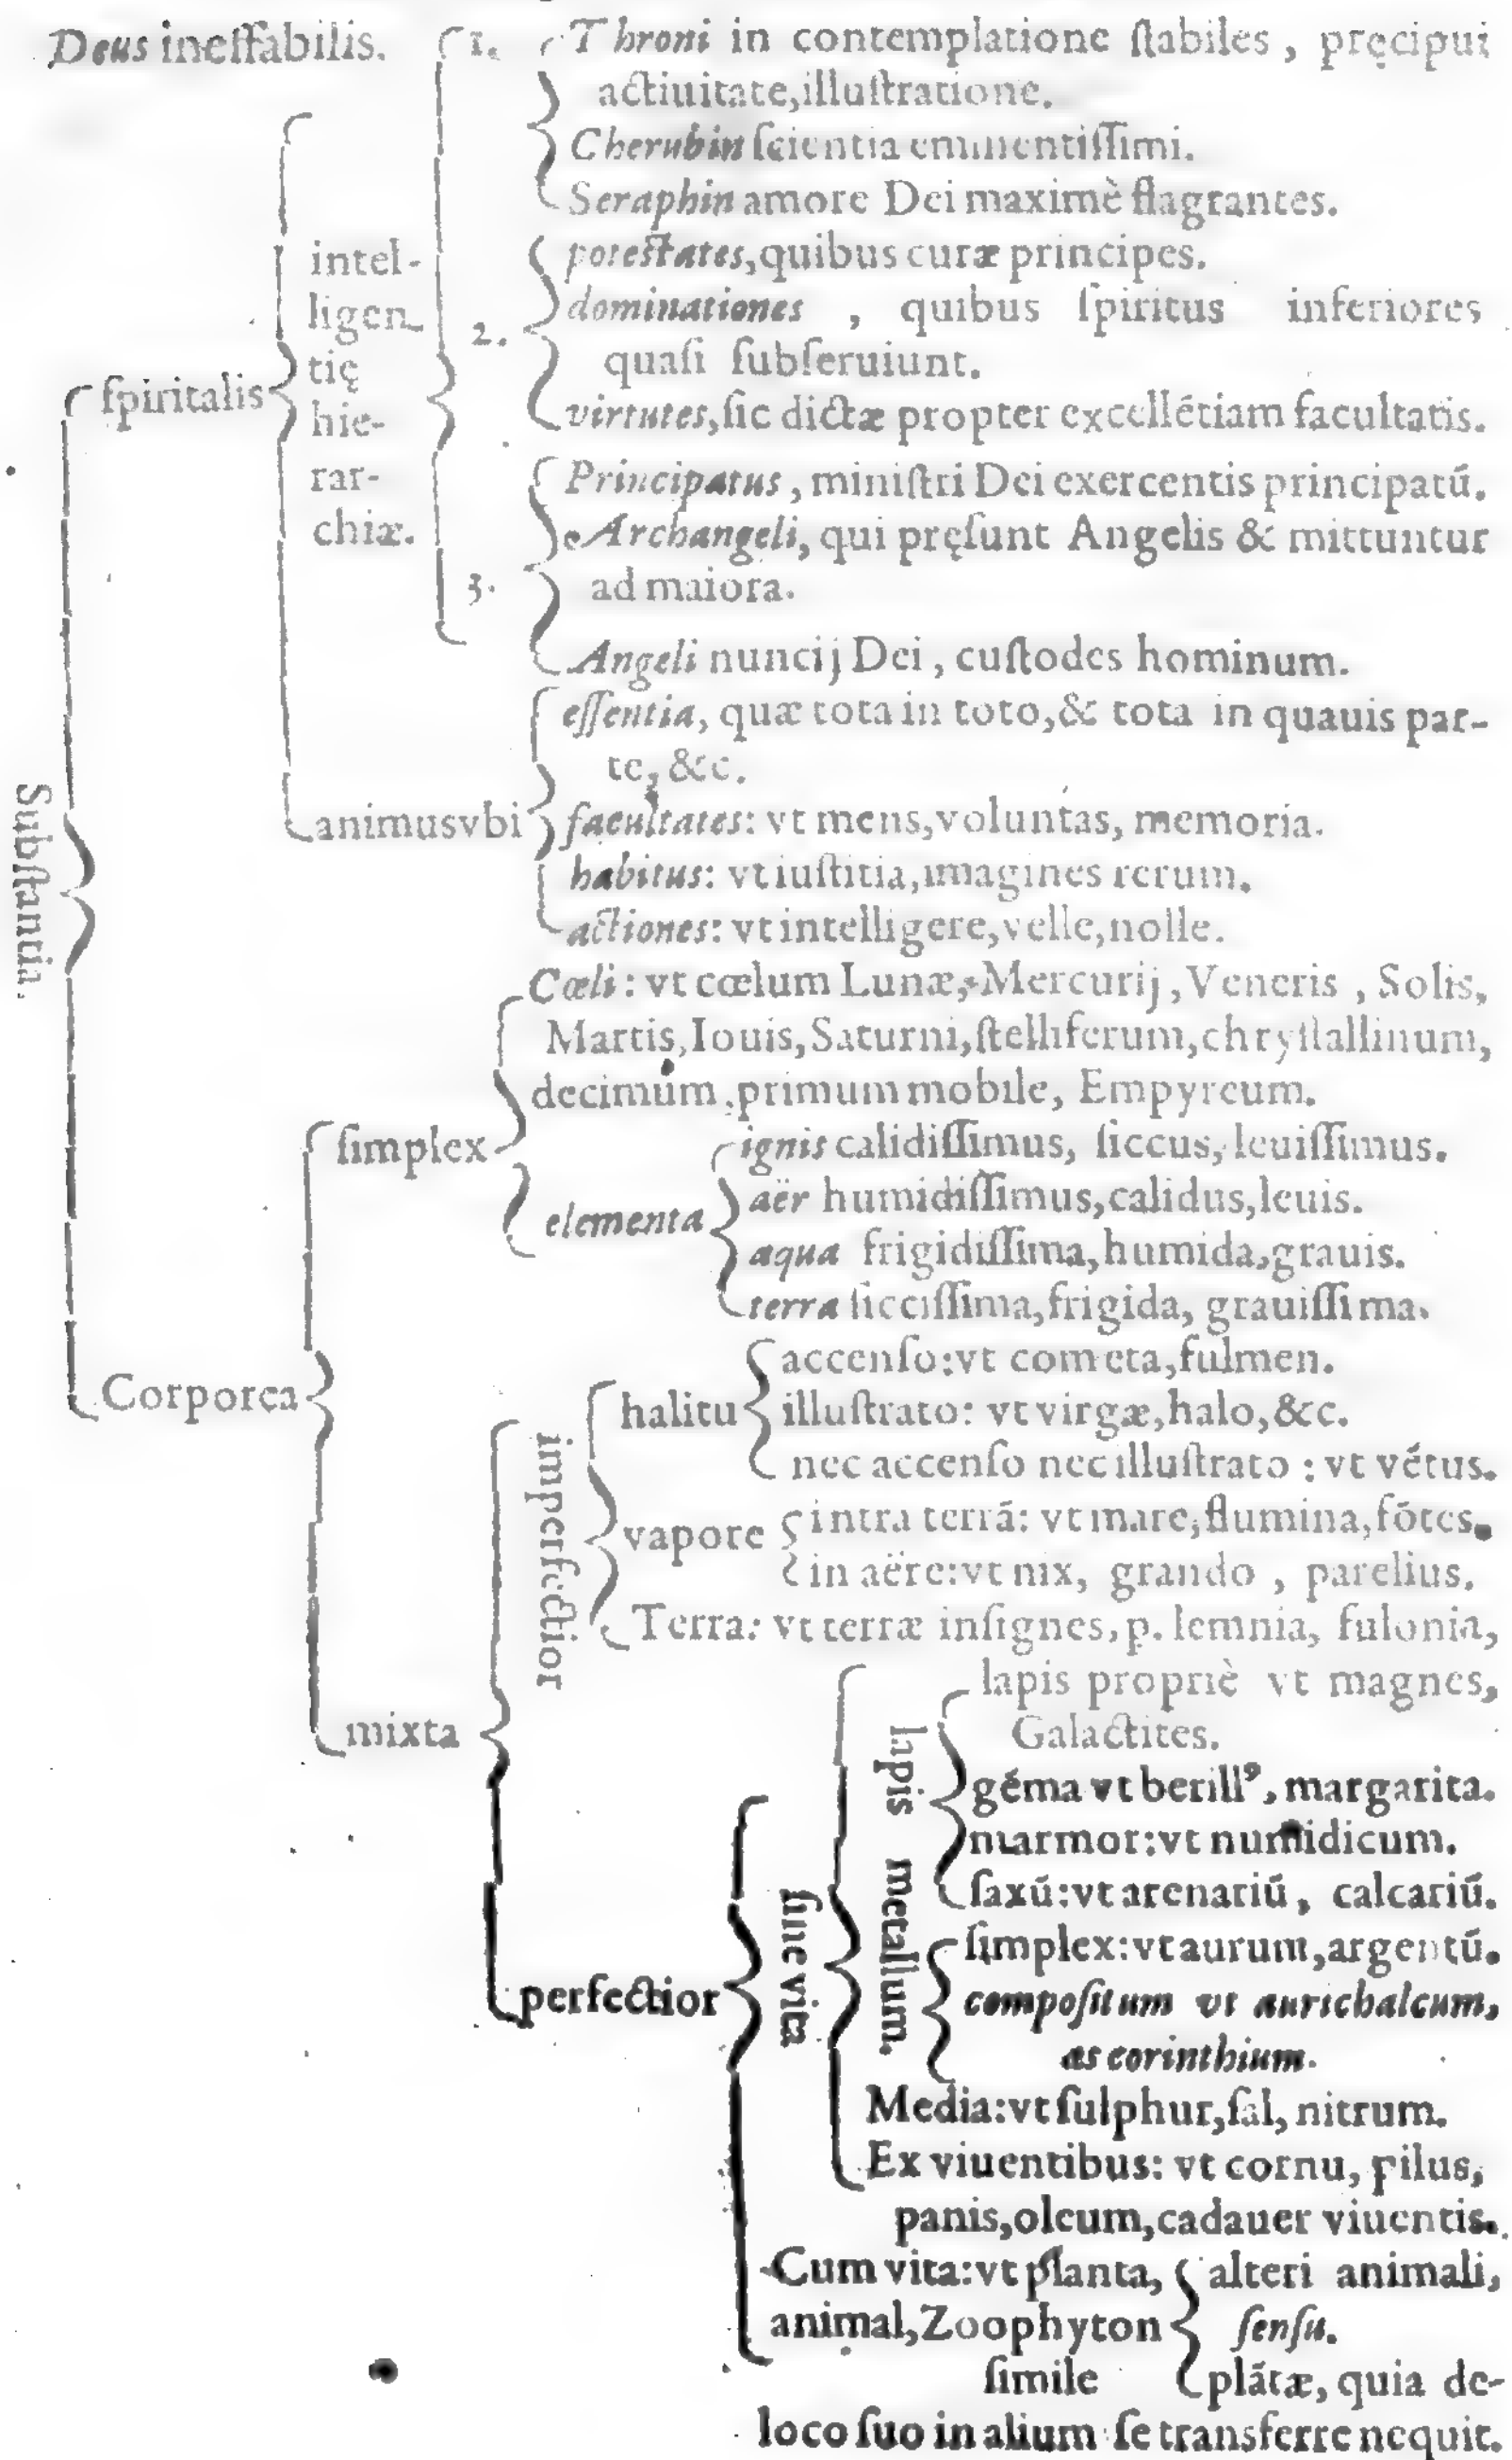 Deus ineffabilis.
1.
Throni in contemplatione ſtabiles, pręcipui
actiuitate, illuſtratione.
Cherubin ſcientia eminentiſſimi.
Seraphin amore Dei maximè flagrantes.
2.
poteſtates, quibus curæ principes.
dominationes, quibus ſpiritus inferiores
quaſi ſubſeruiunt.
virtutes, ſic dictæ propter excellẽtiam facultatis.
3.
Principatus, miniſtri Dei exercentis principatũ.
Archangeli, qui pręſunt Angelis & mittuntur
ad maiora.
Angeli nuncij Dei, cuſtodes hominum.
intel-
ligen-
tię
hie-
rar-
chiæ.
ſpiritalis
eſſentia, quæ tota in toto, & tota in quauis par-
te, &c.
animus vbi
facultates: vt mens, voluntas, memoria.
habitus: vt iuſtitia, imagines rerum.
actiones: vt intelligere, velle, nolle.
Subſtantia.
Cœli: vt cœlum Lunæ, Mercurij, Veneris, Solis,
Martis, Iouis, Saturni, ſtelliferum, chryſtallinum,
decimum, primum mobile, Empyreum.
ſimplex
elementa
ignis calidiſſimus, ſiccus, leuiſſimus.
aër humidiſſimus, calidus, leuis.
aqua frigidiſſima, humida, grauis.
terra ſicciſſima, frigida, grauiſſima.
Corporea
halitu
accenſo: vt cometa, fulmen.
illuſtrato: vt virgæ, halo, &c.
nec accenſo nec illuſtrato: vt vẽtus.
imperfectior
vapore
intra terrã: vt mare, flumina, fõtes.
in aëre: vt nix, grando, parelius.
Terra: vt terræ inſignes, p. lemnia, fulonia,
mixta
lapis
lapis propriè vt magnes,
Galactites.
gẽma vt berillꝰ, margarita.
marmor: vt numidicum.
ſaxũ: vt arenariũ, calcariũ.
metallum.
ſimplex: vt aurum, argentũ.
compoſitum vt aurichalcum,
æs corinthium.
ſine vita
perfectior
Media: vt ſulphur, ſal, nitrum.
Ex viuentibus: vt cornu, pilus,
panis, oleum, cadauer viuentis.
Cum vita: vt planta,
animal, Zoophyton
ſimile
alteri animali,
ſenſu.
plãtæ, quia de-
loco ſuo in alium ſe transferre nequit.